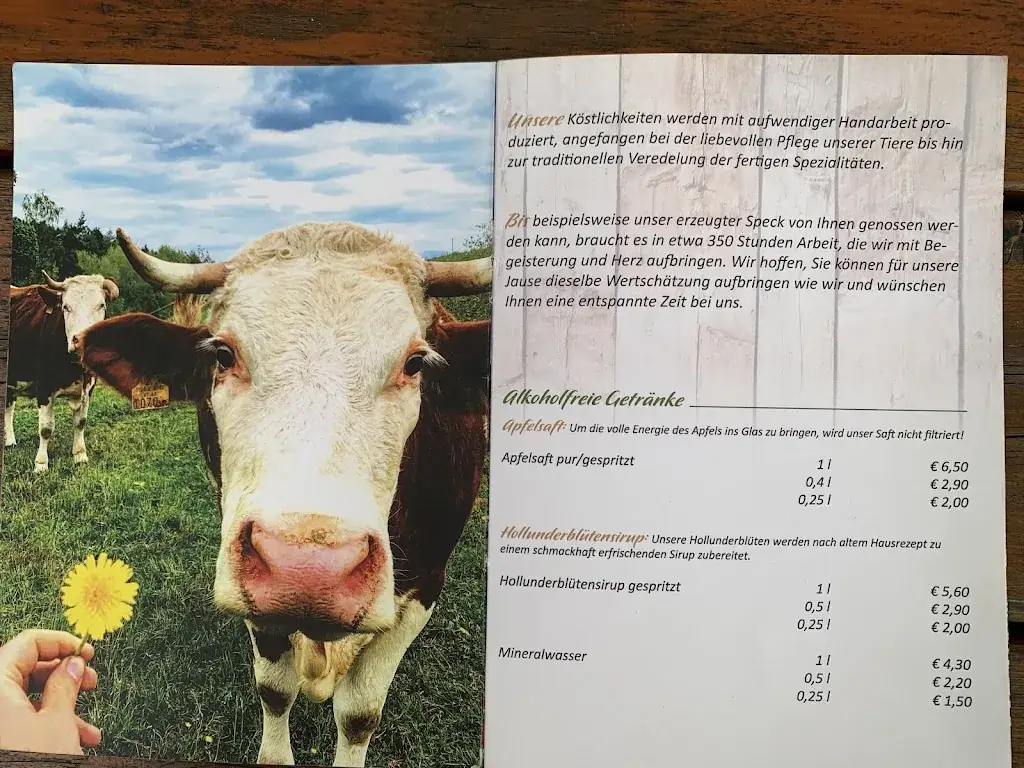 Unsere Köstlichkeiten werden mit aufwendiger Handarbeit pro-
duziert, angefangen bei der liebevollen Pflege unserer Tiere bis hin
zur traditionellen Veredelung der fertigen Spezialitäten.
Bis beispielsweise unser erzeugter Speck von Ihnen genossen wer-
den kann, braucht es in etwa 350 Stunden Arbeit, die wir mit Be-
geisterung und Herz aufbringen. Wir hoffen, Sie können für unsere
Jause dieselbe Wertschätzung aufbringen wie wir und wünschen
Ihnen eine entspannte Zeit bei uns.
Alkoholfreie Getränke
Apfelsaft: Um die volle Energie des Apfels ins Glas zu bringen, wird unser Saft nicht filtriert!
Apfelsaft pur/gespritzt 1 l € 6,50
0,4 l € 2,90
0,25 l € 2,00
Hollunderblütensirup: Unsere Hollunderblüten werden nach altem Hausrezept zu
einem schmackhaft erfrischenden Sirup zubereitet.
Hollunderblütensirup gespritzt 1 l € 5,60
0,5 l € 2,90
0,25 l € 2,00
Mineralwasser 1 l € 4,30
0,5 l € 2,20
0,25 l € 1,50